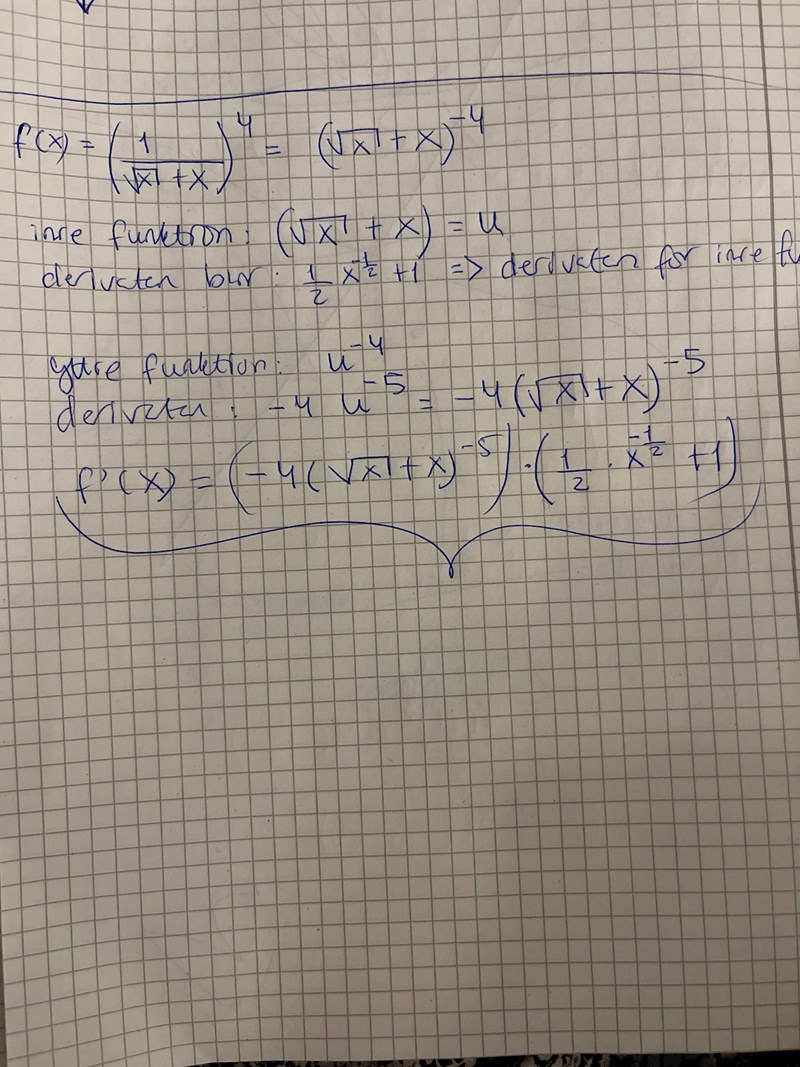 f(x) = (1/(√x + x))^4 = (√x + x)^-4
inre funktion: (√x + x) = u
derivatan blir: 1/2 x^-1/2 + 1 => derivatan för inre fu
yttre funktion: u^-4
derivatan: -4 u^-5 = -4(√x + x)^-5
f'(x) = (-4(√x + x)^-5) · (1/2 · x^-1/2 + 1)